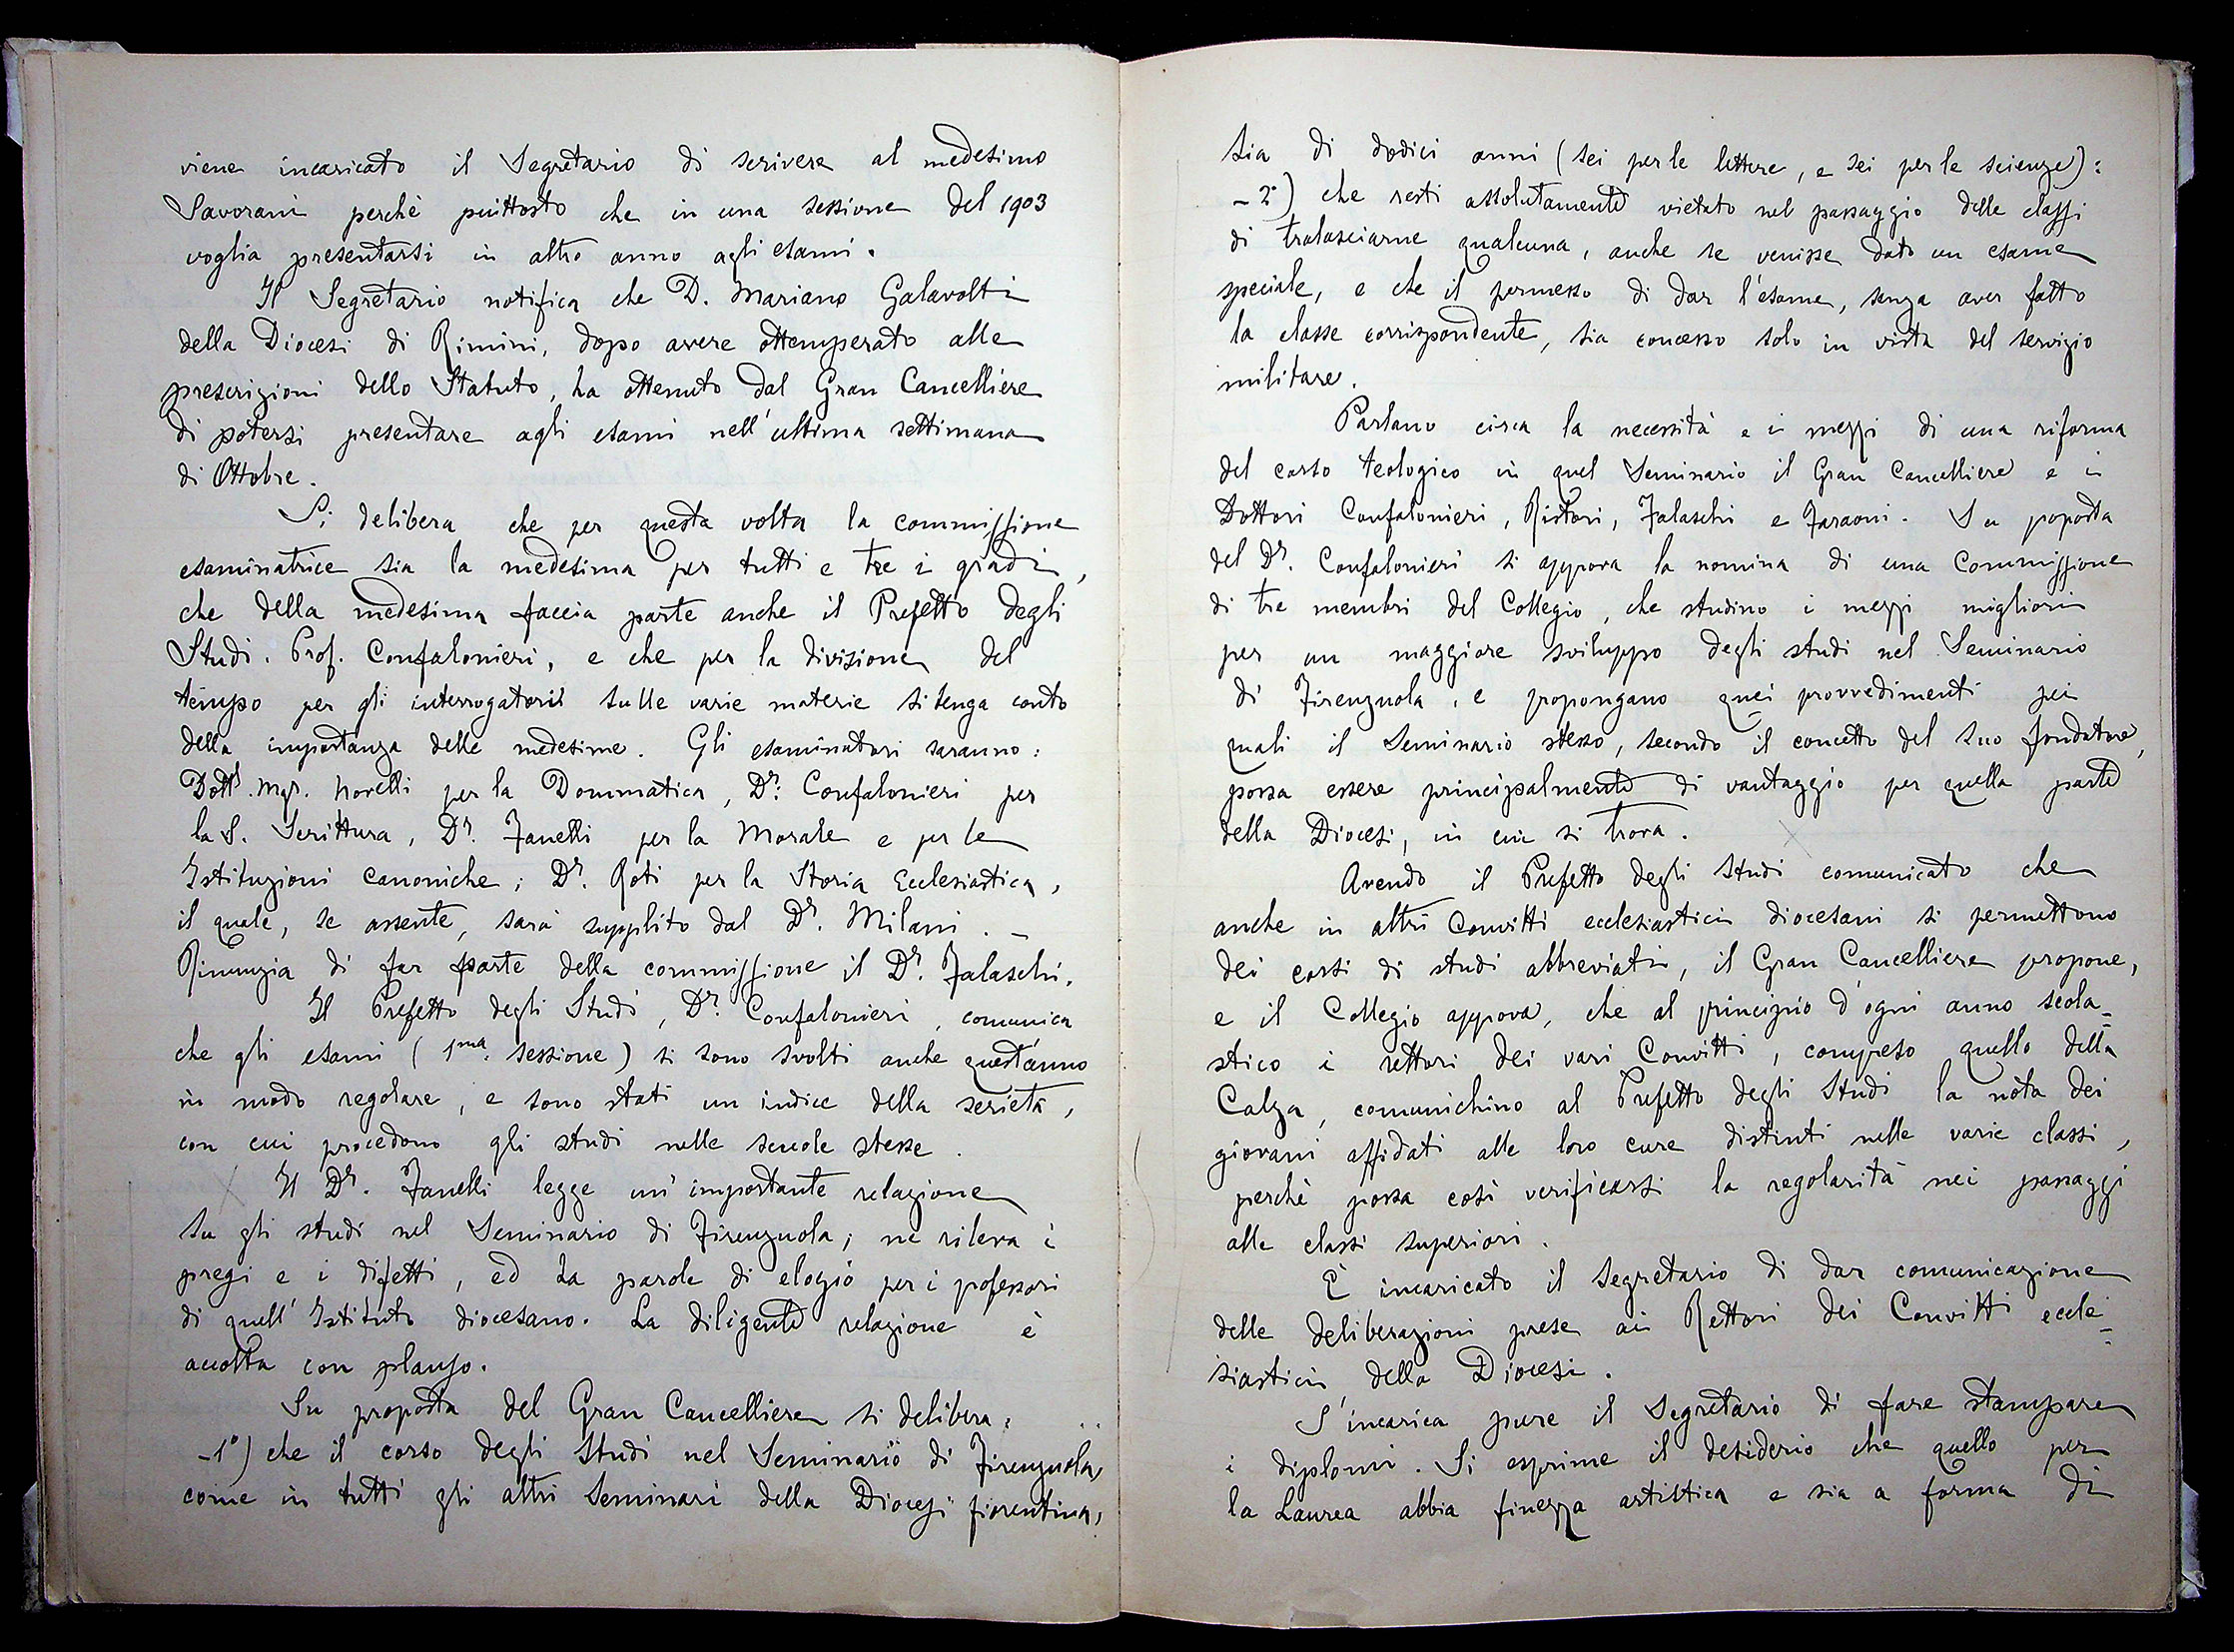 viene incaricato il Segretario di scrivere al medesimo
Savorani perchè piuttosto che in una sessione del 1903
voglia presentarsi in altro anno agli esami.
Il Segretario notifica che D. Mariano Galavolti
della Diocesi di Rimini, dopo avere ottemperato alle
prescrizioni dello Statuto, ha ottenuto dal Gran Cancelliere
di potersi presentare agli esami nell'ultima settimana
di Ottobre.
Si delibera che per questa volta la commissione
esaminatrice sia la medesima per tutti e tre i gradi,
che della medesima faccia parte anche il Prefetto degli
Studi. Prof. Confalonieri, e che per la divisione del
tempo per gli interrogatorii sulle varie materie si tenga conto
della importanza delle medesime. Gli esaminatori saranno:
Dott. Mgr. Novelli per la Dommatica, Dr. Confalonieri per
la S. Scrittura, Dr. Fanelli per la Morale e per le
Istituzioni canoniche; Dr. Roti per la Storia Ecclesiastica,
il quale, se assente, sarà supplito dal Dr. Milani. -
Rinunzia di far parte della commissione il Dr. Falaschi.
Il Prefetto degli Studi, Dr. Confalonieri, comunica
che gli esami (1ma. sessione) si sono svolti anche quest'anno
in modo regolare, e sono stati un indice della serietà,
con cui procedono gli studi nelle scuole stesse.
Il Dr. Fanelli legge un'importante relazione
su gli studi nel Seminario di Firenzuola; ne rileva i
pregi e i difetti, ed ha parole di elogio per i professori
di quell'Istituto diocesano. La diligente relazione è
accolta con plauso.
Su proposta del Gran Cancelliere si delibera:
-1°) che il corso degli Studi nel Seminario di Firenzuola,
come in tutti gli altri Seminari della Diocesi fiorentina,
sia di dodici anni (sei per le lettere, e sei per le scienze):
-2°) che resti assolutamente vietato nel passaggio delle classi
di tralasciarne qualcuna, anche se venisse dato un esame
speciale, e che il permesso di dar l'esame, senza aver fatto
la classe corrispondente, sia concesso solo in vista del servizio
militare.
Parlano circa la necessità e i mezzi di una riforma
del corso teologico in quel Seminario il Gran Cancelliere e i
Dottori Confalonieri, Ristori, Falaschi e Faraoni. Su poposta
del Dr. Confalonieri si appova la nomina di una Commissione
di tre membri del Collegio, che studino i mezzi migliori
per un maggiore sviluppo degli studi nel Seminario
di Firenzuola, e propongano quei provvedimenti pei
quali il Seminario stesso, secondo il concetto del suo fondatore,
possa essere principalmente di vantaggio per quella parte
della Diocesi, in cui si trova.
Avendo il Prefetto degli Studi comunicato che
anche in altri Convitti ecclesiastici diocesani si permettono
dei corsi di studi abbreviati, il Gran Cancelliere propone,
e il Collegio approva, che al principio d'ogni anno scola-
stico i rettori dei vari Convitti, compreso quello della
Calza, comunichino al Prefetto degli Studi la nota dei
giovani affidati alle loro cure distinti nelle varie classi,
perchè possa così verificarsi la regolarità nei passaggi
alle classi superiori.
È incaricato il Segretario di dar comunicazione
delle deliberazioni prese ai Rettori dei Convitti eccle-
siastici della Diocesi.
S'incarica pure il Segretario di fare stampare
i diplomi. Si esprime il desiderio che quello per
la Laurea abbia finezza artistica e sia a forma di